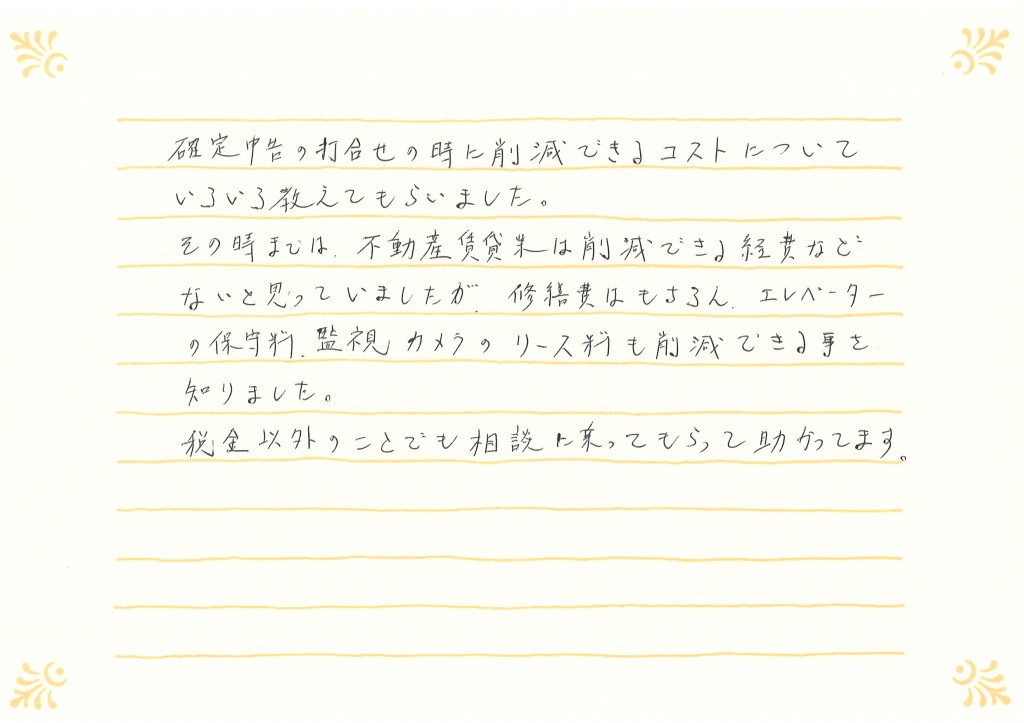 確定申告の打合せの時に削減できるコストについて
いろいろ教えてもらいました。
その時までは、不動産賃貸業は削減できる経費など
ないと思っていましたが、修繕費はもちろん、エレベーター
の保守料、監視カメラのリース料も削減できる事を
知りました。
税金以外のことでも相談に乗ってもらって助かってます。